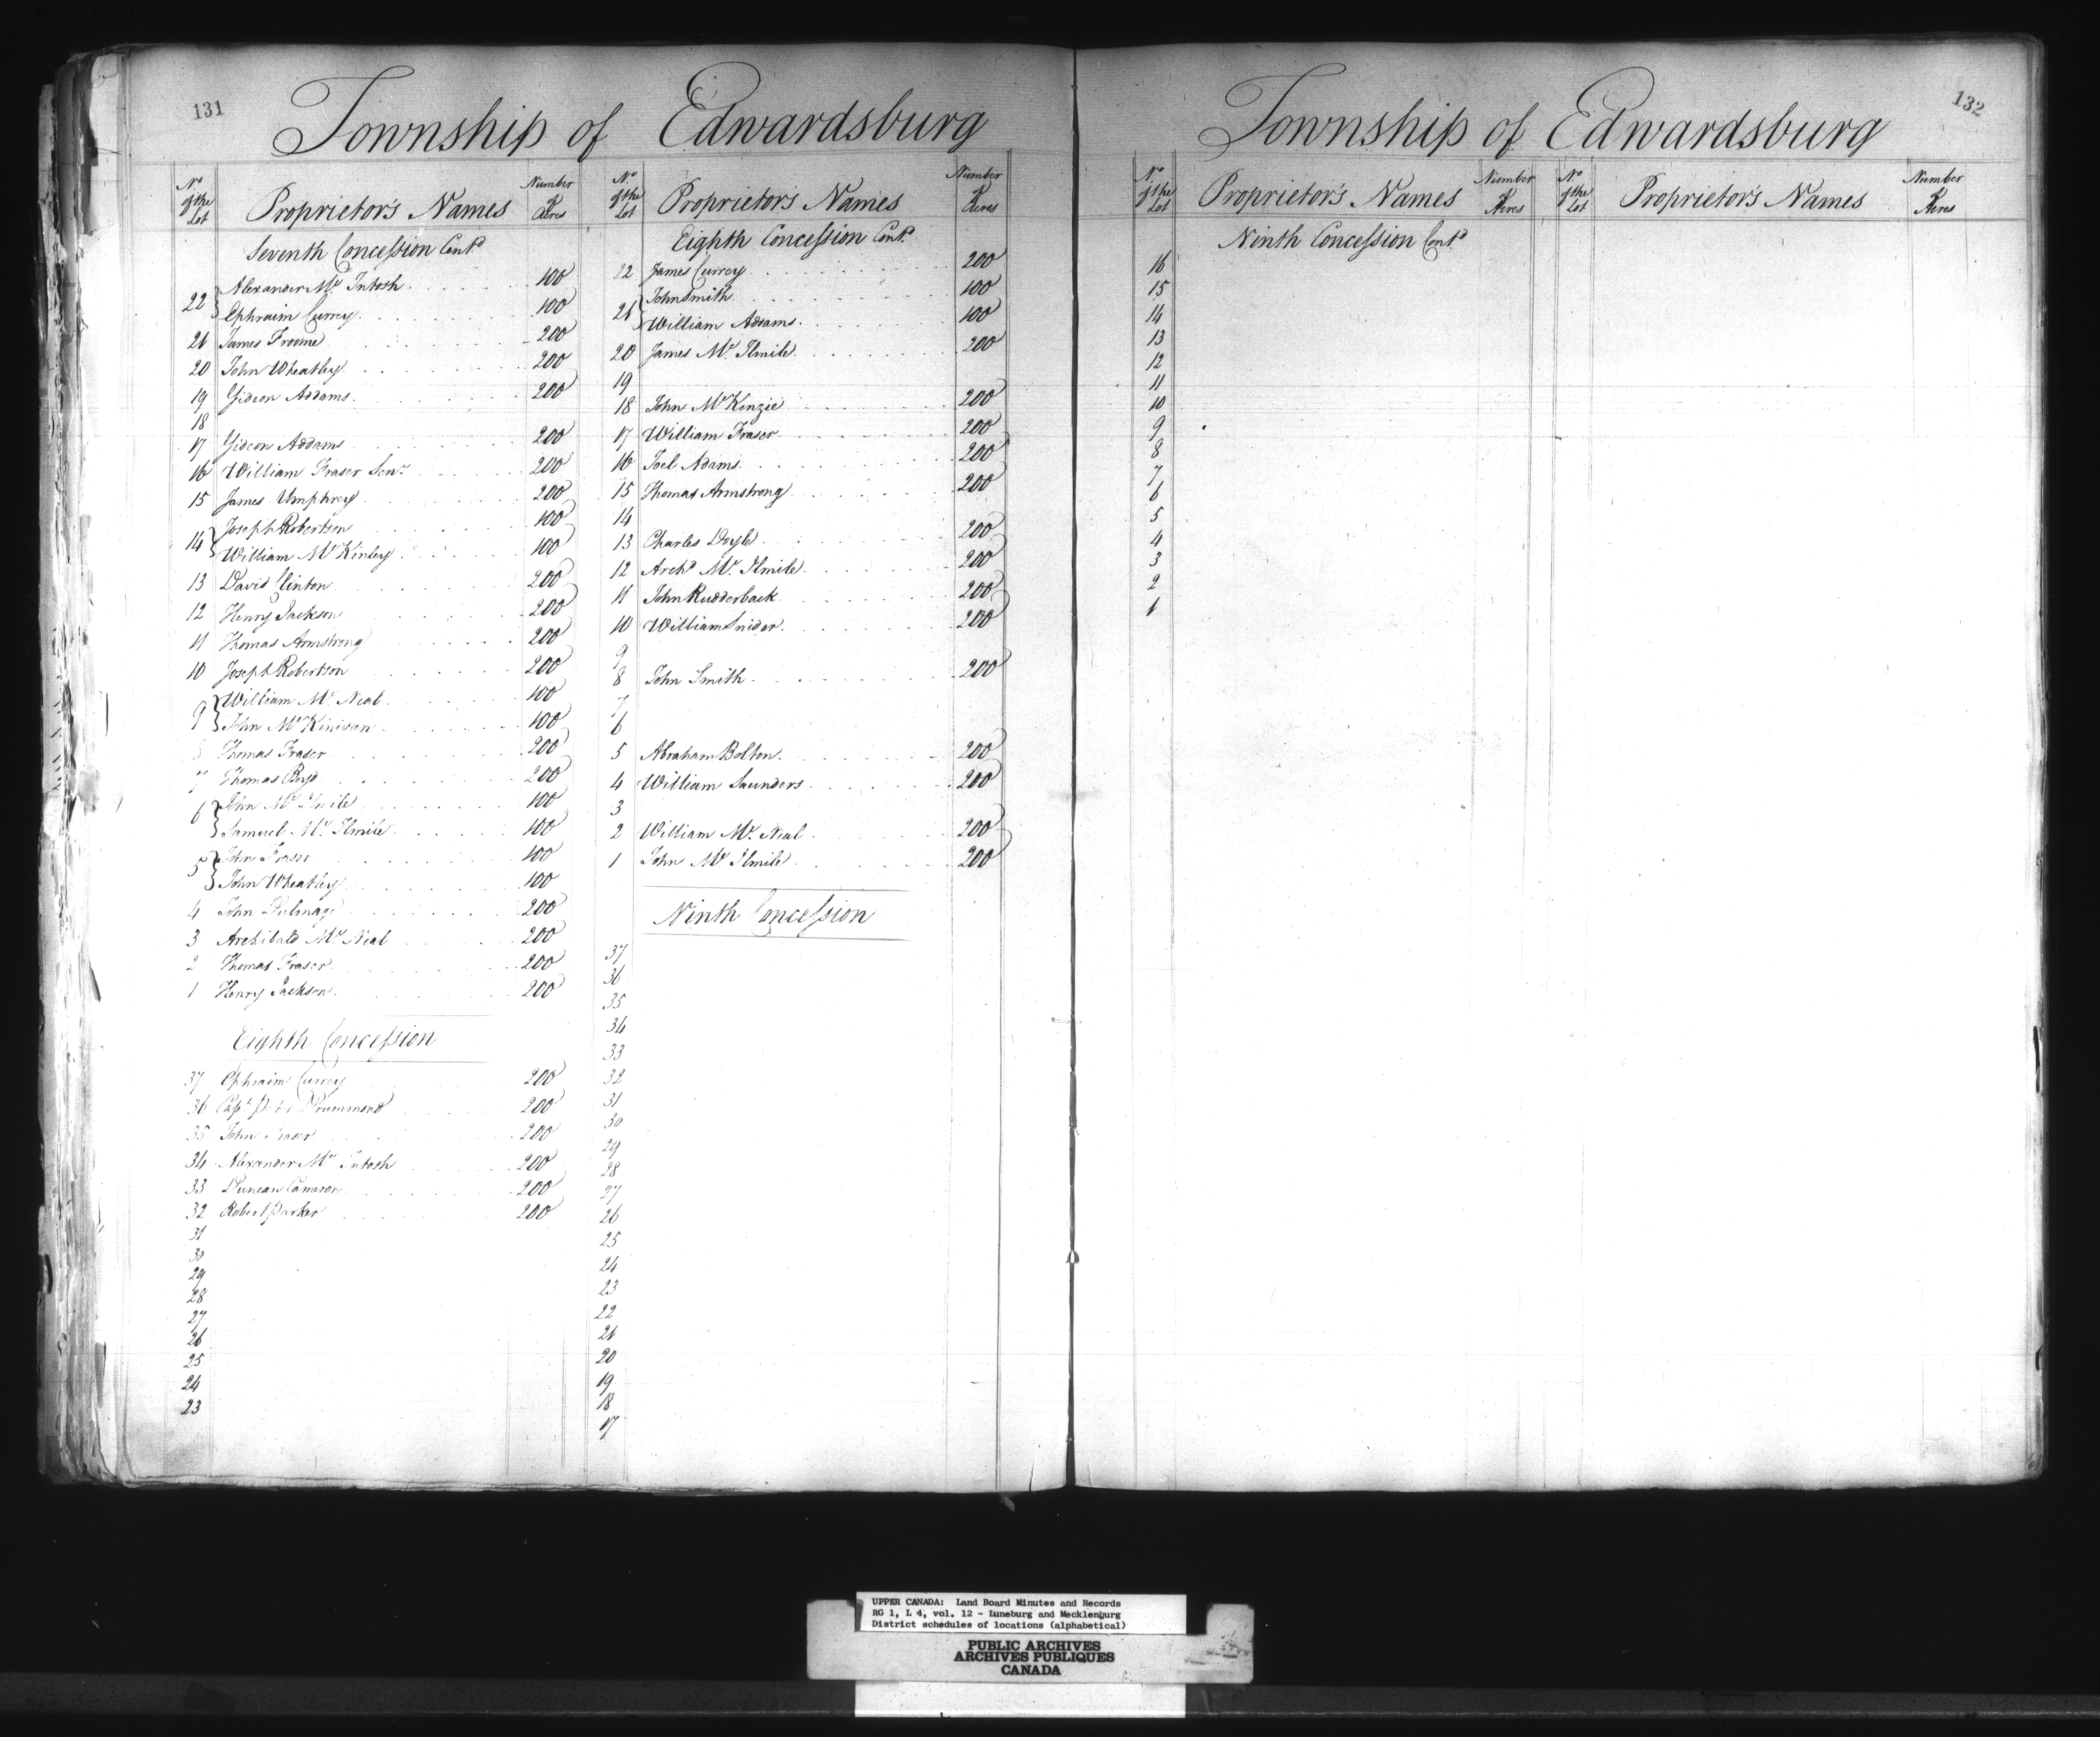 131
Township of Edwardsburg
No of the Lot Proprietor's Names Number of Acres
Seventh Concession Contd
22 Alexander Mc Intosh 100
Ephraim Currey 100
21 James Froome 200
20 John Wheatley 200
19 Gideon Addams 200
18
17 Gideon Addams 200
16 William Fraser Senr 200
15 James Umphrey 200
14 Joseph Robertson 100
William Mc Kinley 100
13 David Clinton 200
12 Henry Jackson 200
11 Thomas Armstrong 200
10 Joseph Robertson 200
9 William Mc Neal 100
John Mc Kinison 100
8 Thomas Fraser 200
7 Thomas Boyd 200
6 John Mc Ilmile 100
Samuel Mc Ilmile 100
5 John Fraser 100
John Wheatley 100
4 John Dulmage 200
3 Archibald Mc Neal 200
2 Thomas Fraser 200
1 Henry Jackson 200
Eighth Concession
37 Ephraim Currey 200
36 Capt Peter Drummond 200
35 John Fraser 200
34 Alexander Mc Intosh 200
33 Duncan Cameron 200
32 Robert Parker 200
31
30
29
28
27
26
25
24
23
No of the Lot Proprietor's Names Number of Acres
Eighth Concession Contd
22 James Currey 200
21 John Smith 100
William Addams 100
20 James Mc Ilmile 200
19
18 John Mc Kenzie 200
17 William Fraser 200
16 Joel Adams 200
15 Thomas Armstrong 200
14
13 Charles Doyle 200
12 Archd Mc Ilmile 200
11 John Rudderback 200
10 William Snider 200
9
8 John Smith 200
7
6
5 Abraham Bolton 200
4 William Saunders 200
3
2 William Mc Neal 200
1 John Mc Ilmile 200
Ninth Concession
37
36
35
34
33
32
31
30
29
28
27
26
25
24
23
22
21
20
19
18
17
132
Township of Edwardsburg
No of the Lot Proprietor's Names Number of Acres No of the Lot Proprietor's Names Number of Acres
Ninth Concession Contd
16
15
14
13
12
11
10
9
8
7
6
5
4
3
2
1
UPPER CANADA: Land Board Minutes and Records
RG 1, L 4, vol. 12 - Luneburg and Mecklenburg
District schedules of locations (alphabetical)
PUBLIC ARCHIVES
ARCHIVES PUBLIQUES
CANADA